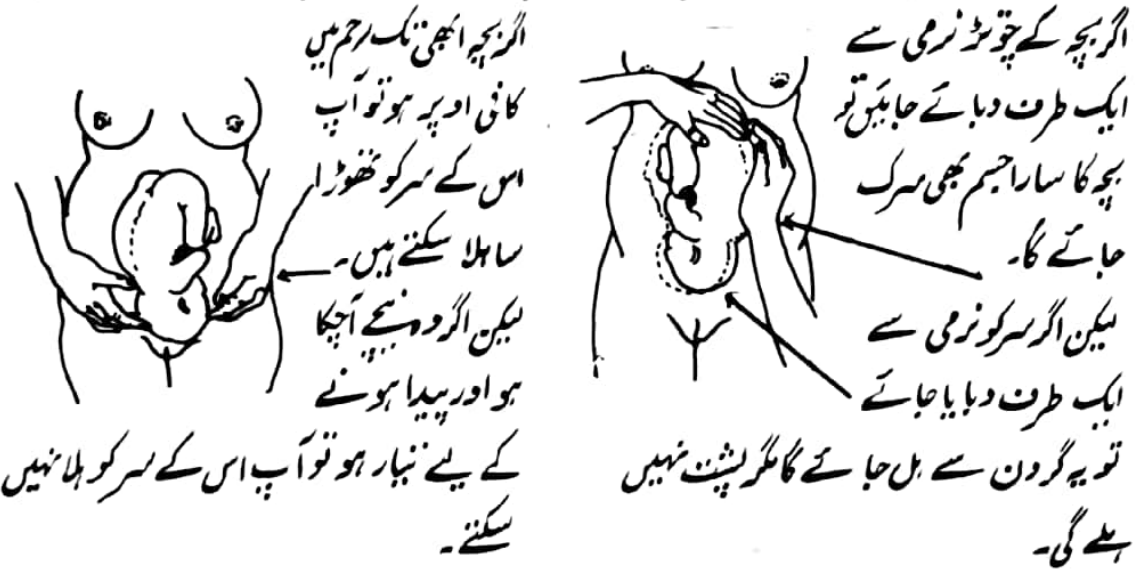 اگر بچہ کے چوتڑ نرمی سے
ایک طرف دبائے جائیں تو
بچہ کا سارا جسم بھی سرک
جائے گا۔
لیکن اگر سر کو نرمی سے
ایک طرف دبایا جائے
تو یہ گردن سے ہل جائے گا مگر پشت نہیں
ہلے گی۔
اگر بچہ ابھی تک رحم میں
کافی اوپر ہو تو آپ
اس کے سر کو تھوڑا
سا ہلا سکتے ہیں۔
لیکن اگر وہ نیچے آ چکا
ہو اور پیدا ہونے
کے لیے تیار ہو تو آپ اس کے سر کو ہلا نہیں
سکتے۔